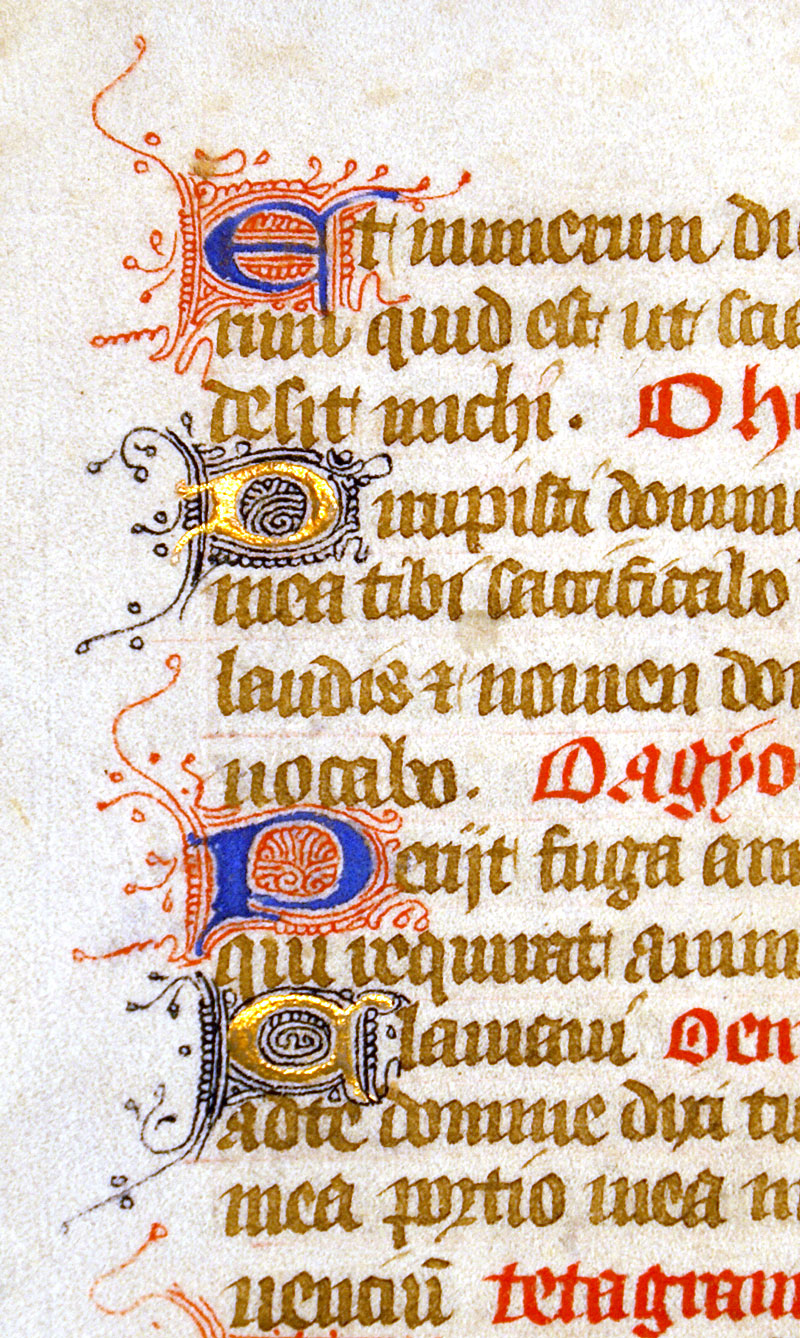 Et numerum di
rum quid est ut scia
desit michi. O h
Dirupisti domine
mea tibi sacrificabo
laudis ⁊ nomen do
uocabo. O agyo
Perijt fuga a m
qui requirat anim
Clamaui O em
adte domine dixi tu
mea portio mea
uenciū tetagram